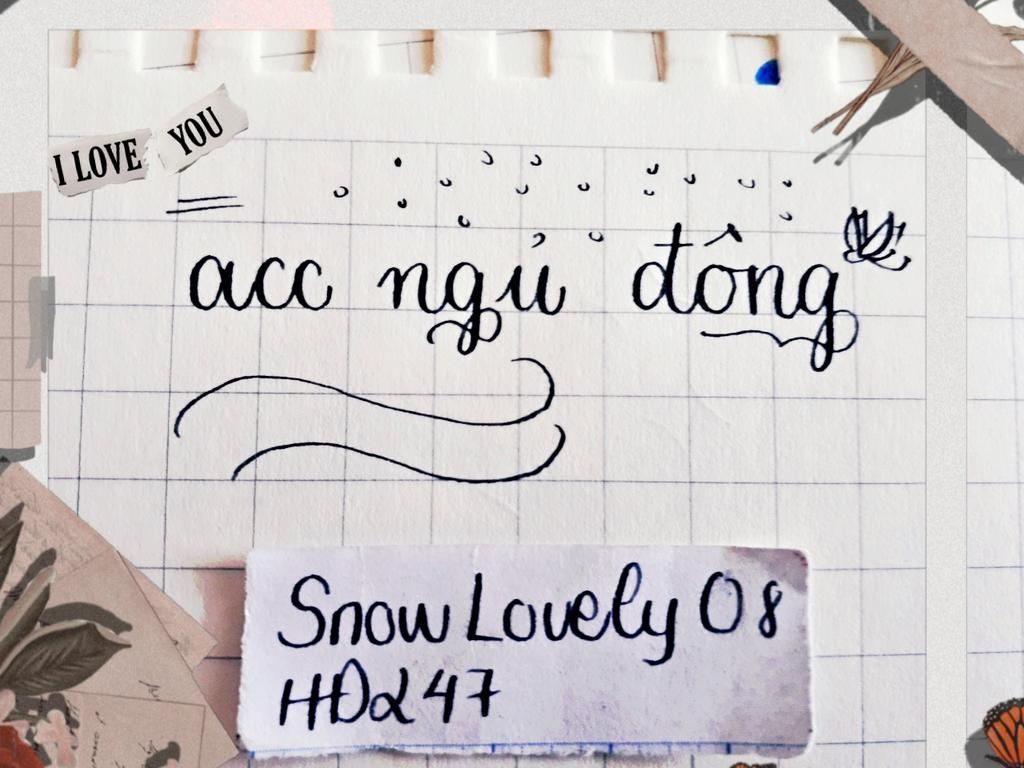 I LOVE YOU
acc ngủ đông
Snow Lovely 08
HDα47